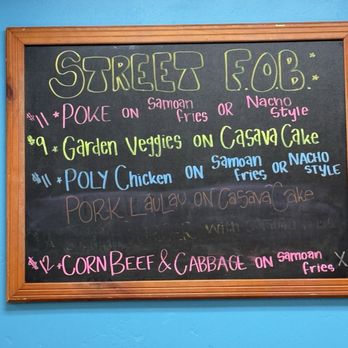 STREET F.O.B.
$11 * POKE ON Samoan fries OR Nacho Style
$9 * Garden Veggies ON CasavaCake
$11 * POLY Chicken ON Samoan fries OR NACHO STYLE
PORK LauLau ON CasavaCake
$12 * CORNBEEF & CABBAGE ON Samoan fries X